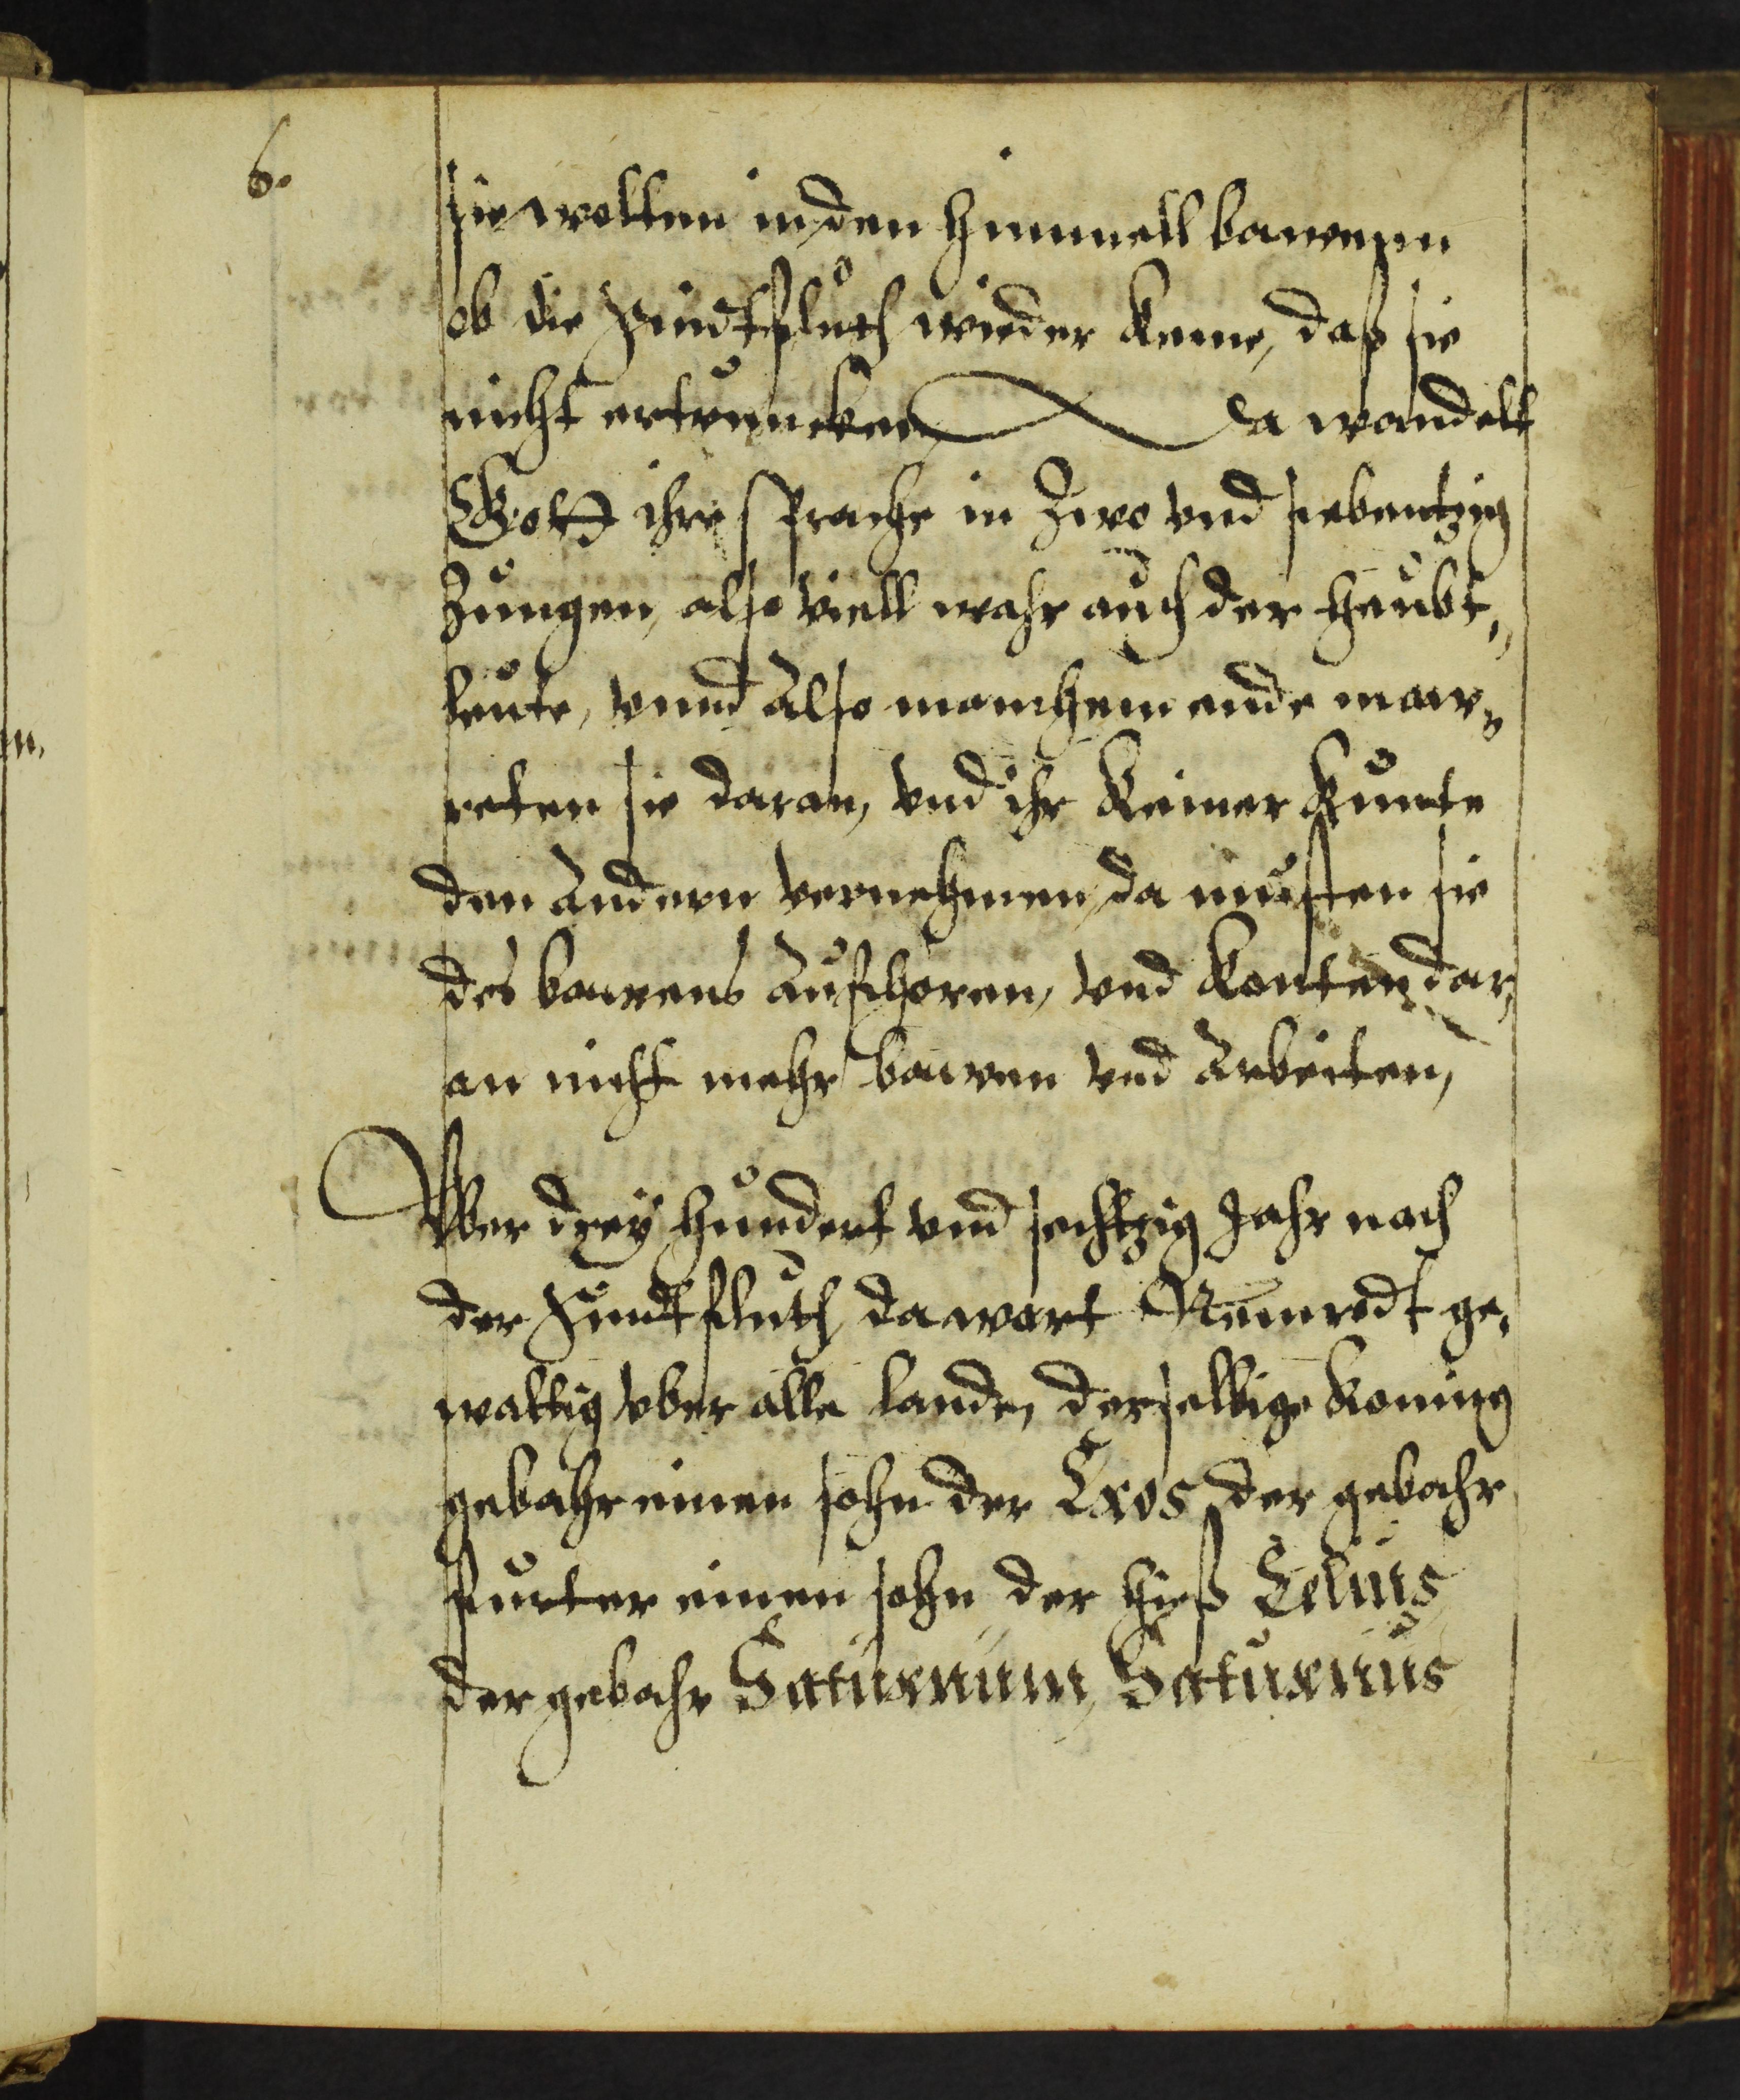 6.
sie wolten in den Himmell bawenn
ob die Sindtfluth wieder keme, daß sie
nicht ertruncken da wandelt
Gott ihre sprache in Zwo vnd siebentzig
Zungen, also viell wahr auch der Haubt„
leute, vnnd Also manchem ende mar„
reten sie daran, vnd ihr keiner kunte
den Andern vernehmen, da musten sie
des bawens Aufhoren, vnd konten dar„
an nicht mehr bawen vnd Arbeiten,
Vber drey hundert vnd sechtzig Jahr nach
der Sindtfluth da wart Nemredt ge„
waltig vber alle lande, derselbige koning
gebahr einen sohn der Cros, der gebahr
furter einen sohn der hieß Celius,
der gebahr Saturnum, Saturnus